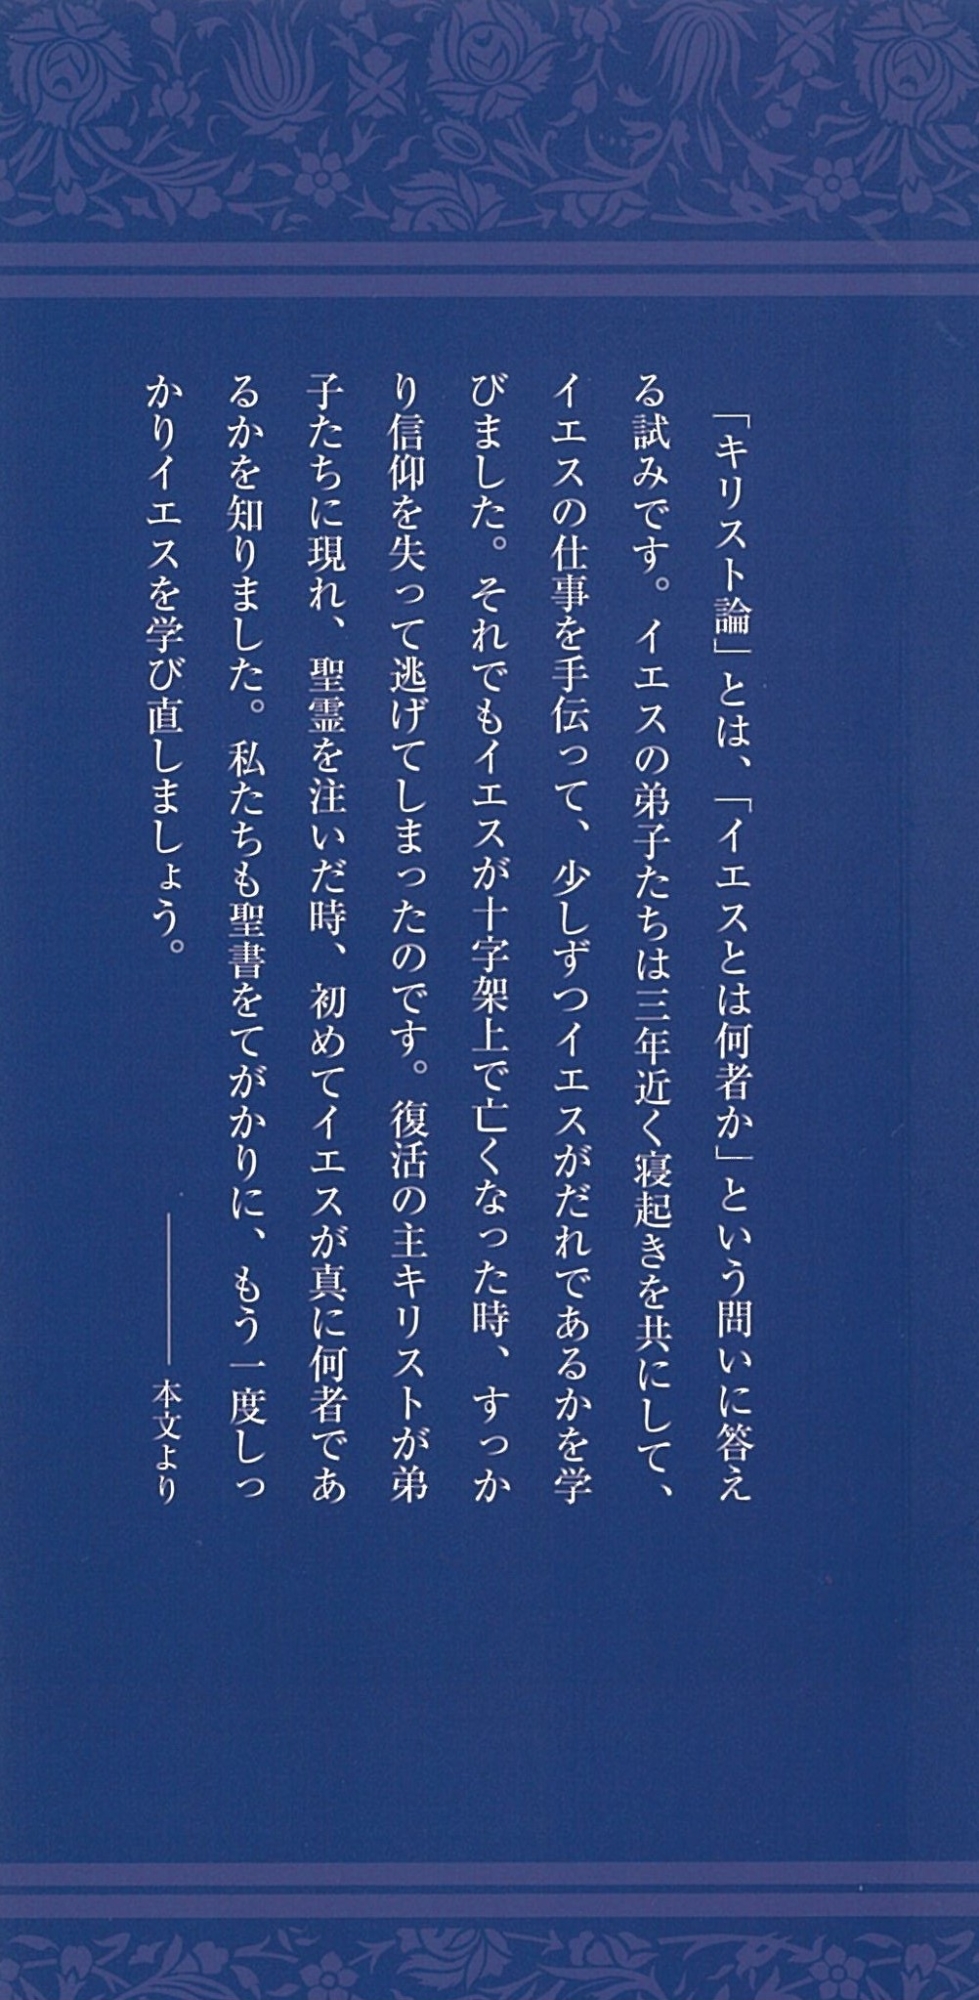 「キリスト論」とは、「イエスとは何者か」という問いに答え
る試みです。イエスの弟子たちは三年近く寝起きを共にして、
イエスの仕事を手伝って、少しずつイエスがだれであるかを学
びました。それでもイエスが十字架上で亡くなった時、すっか
り信仰を失って逃げてしまったのです。復活の主キリストが弟
子たちに現れ、聖霊を注いだ時、初めてイエスが真に何者であ
るかを知りました。私たちも聖書をてがかりに、もう一度しっ
かりイエスを学び直しましょう。
――本文より